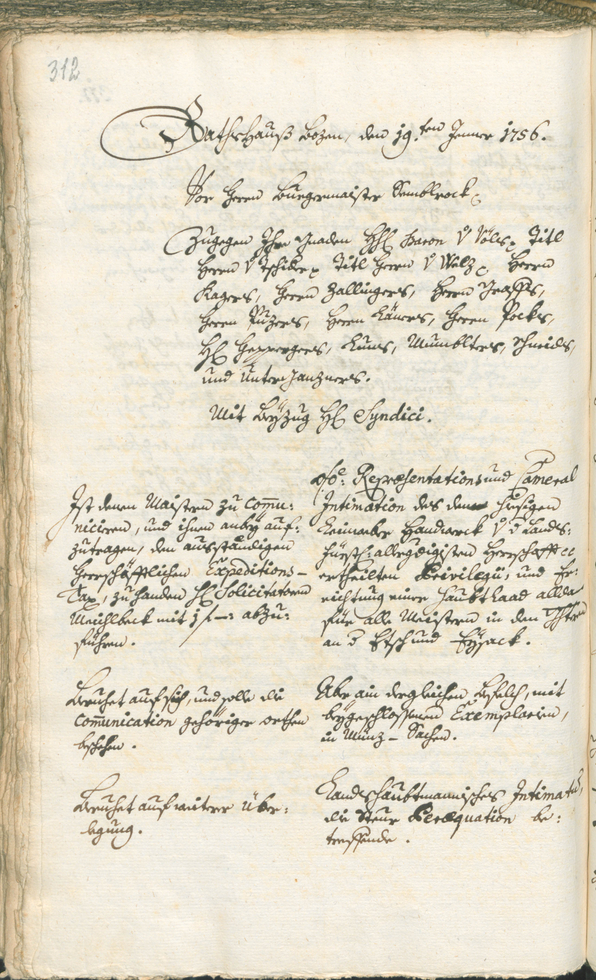 312
Rathshauß Bozen, den 19.ten Jenner 1756.
Vor Herrn Burgermaister
Zugegen Ihro Gnaden Baron v Völs, Titl
Herrn v Titl Herrn v Welz, Herrn
Kagers, Herrn Zallingers, Herrn Graffs,
Herrn Herrn Herrn Pocks,
Geppergers, Kuns, Mumblters, Schmids,
und Unterganzners.
Mit Beyzug H: Syndici.
Ist denen Maistern zu comu:
niciren, und ihnen anbey auf:
zutragen, den ausständigen
Herrschafftlichen Expeditions-
Tax, zu handen H: Solicitatorn
mit 1 f –: abzu:
führen.
Repræsentations und Cameral
Intimation des hiesigen
Handwerck Lands:
fürstl: allergdigisten Herrschafft
ertheilten Privilegii, und Er:
richtung einer Haubtlaad allda
für alle Maistern in den
an d Etsch und Eysack.
Beruhet auf sich, und solle die
Comunication gehöriger orthen
beschehen.
Abermain dergleichen Befelch, mit
beygeschlossenen Exemplarien,
in Münz-Sachen.
Beruhet auf weitere Über:
legung.
Landshaubtmannisches Intimatum,
die Steur Peræquation be:
treffende.